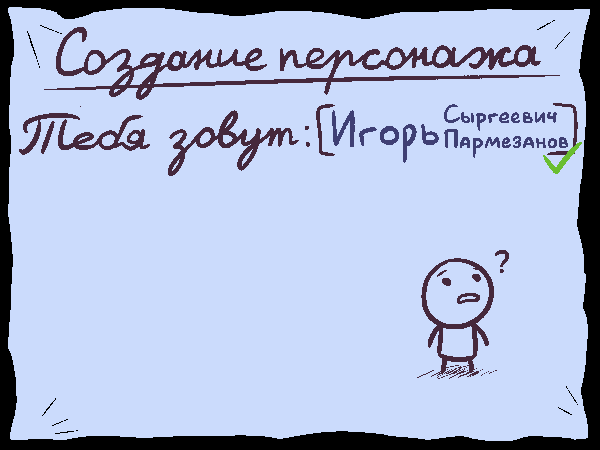 Создание персонажа
Тебя зовут: [Игорь Сыргеевич
Пармезанов]
?